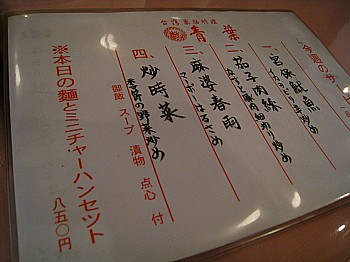 台湾薬膳料理
青葉
今週のサ
一、宮保魷魚
イカのピリ辛炒め
二、茄子肉絲
なすと豚肉細切り炒め
三、麻婆春雨
マーボーはるさめ
四、炒時菜
季節の野菜炒め
御飯 スープ 漬物 点心 付
※本日の麺とミニチャーハンセット
八五〇円